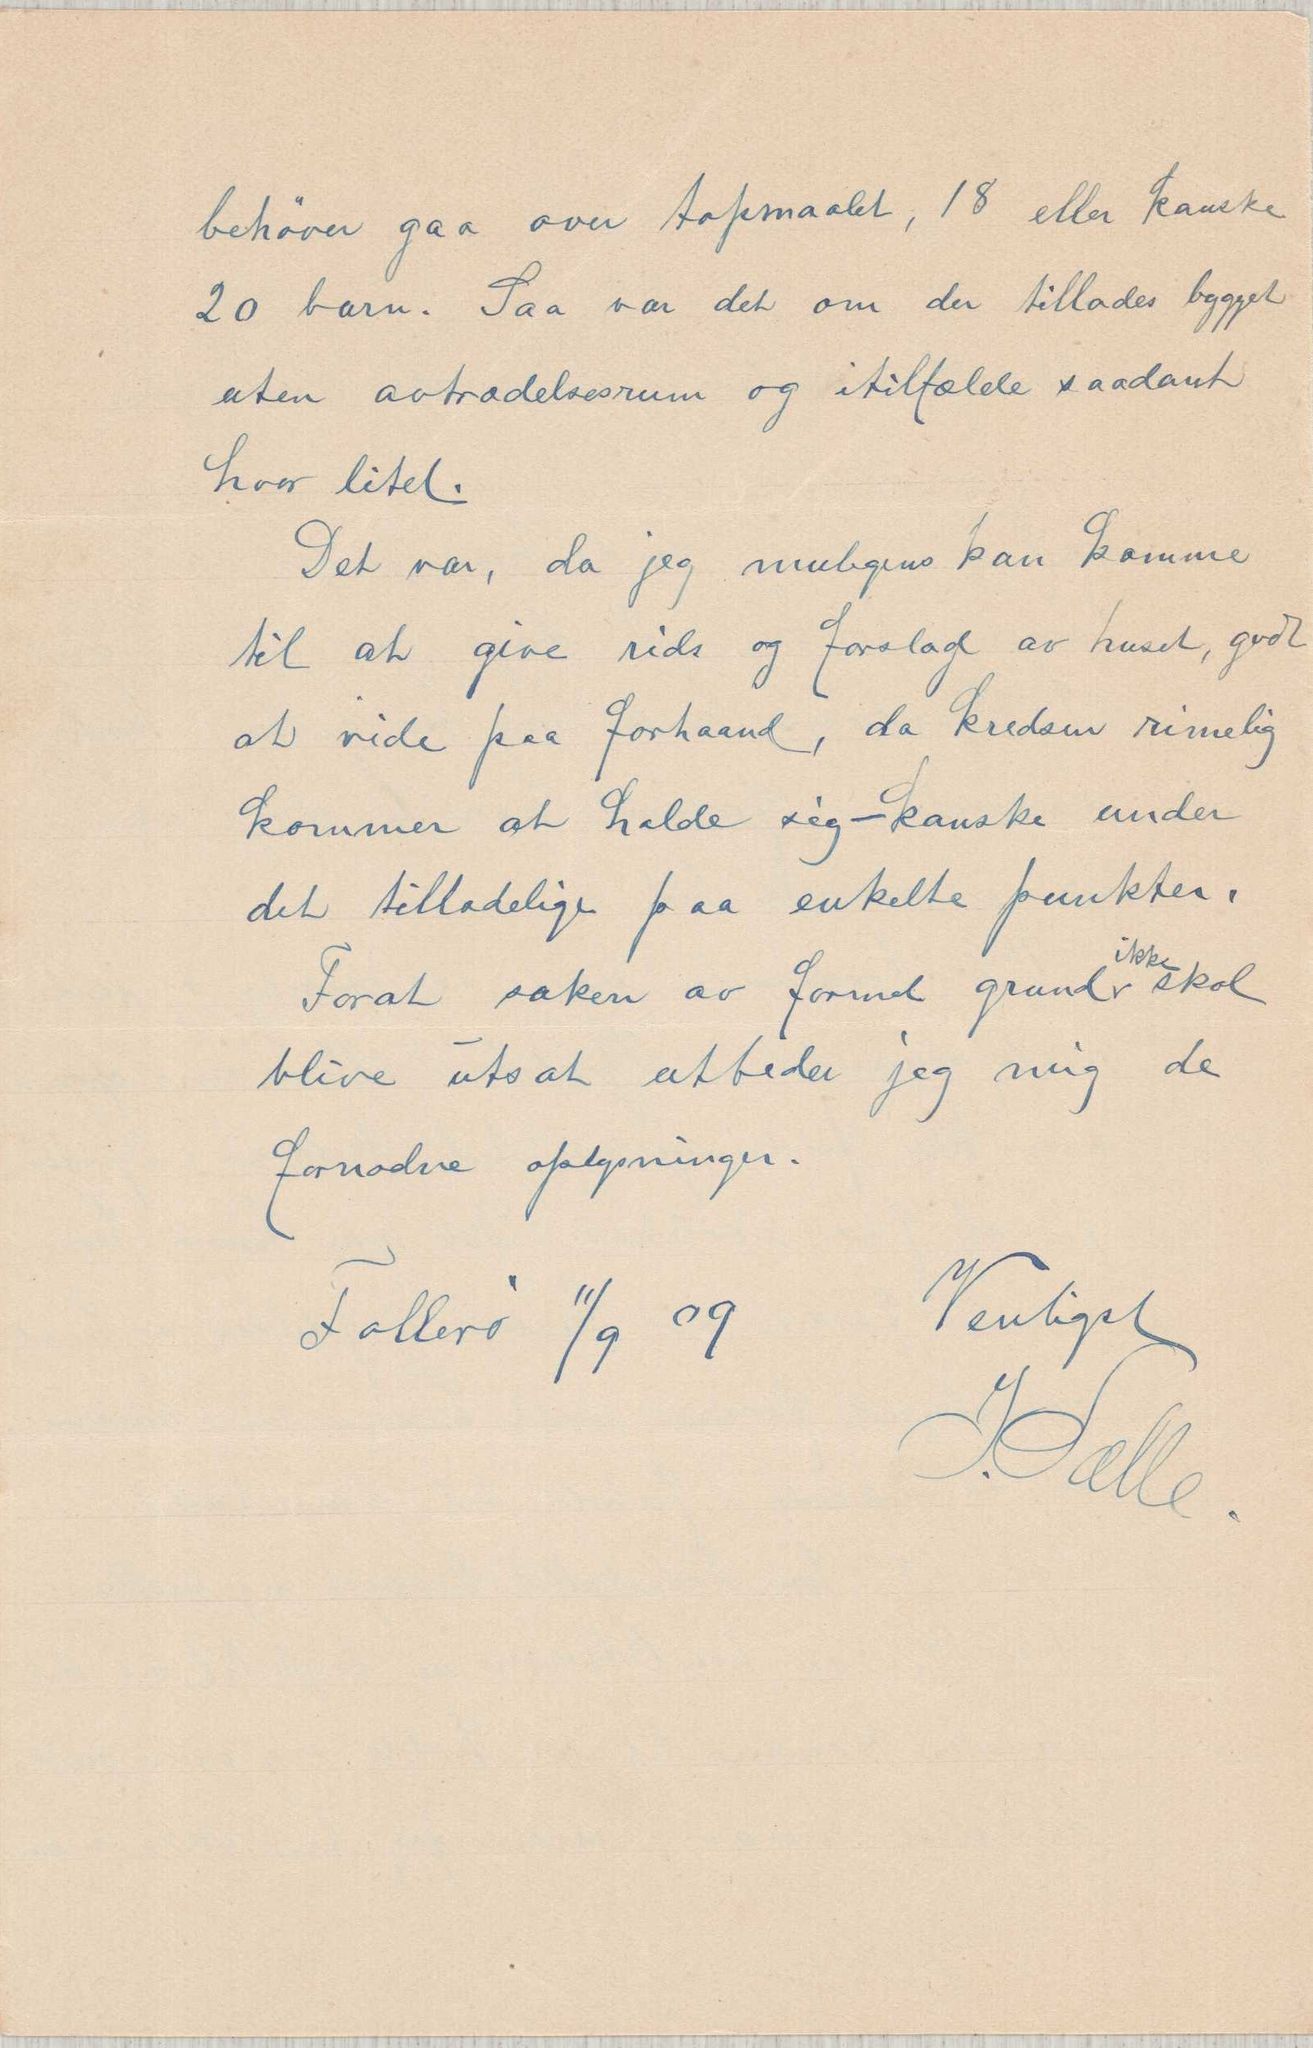 behöver gaa over topmaalet, 18 eller kanske
20 barn. Saa var det om der tillades bygget
uten avtrædelsesrum og itilfælde saadant
hvor litet.
Det var, da jeg muligens kan komme
til at give rids og forslag av huset, godt
at vide paa forhaand, da kredsen rimelig
kommer at holde sig – kanske under
det tilladelige paa enkelte punkter.
Forat saken av formel grund ikke skal
blive utsat utbeder jeg mig de
fornødne oplysninger.
Follerö 11/9 09 Venligst
J. Sælle.